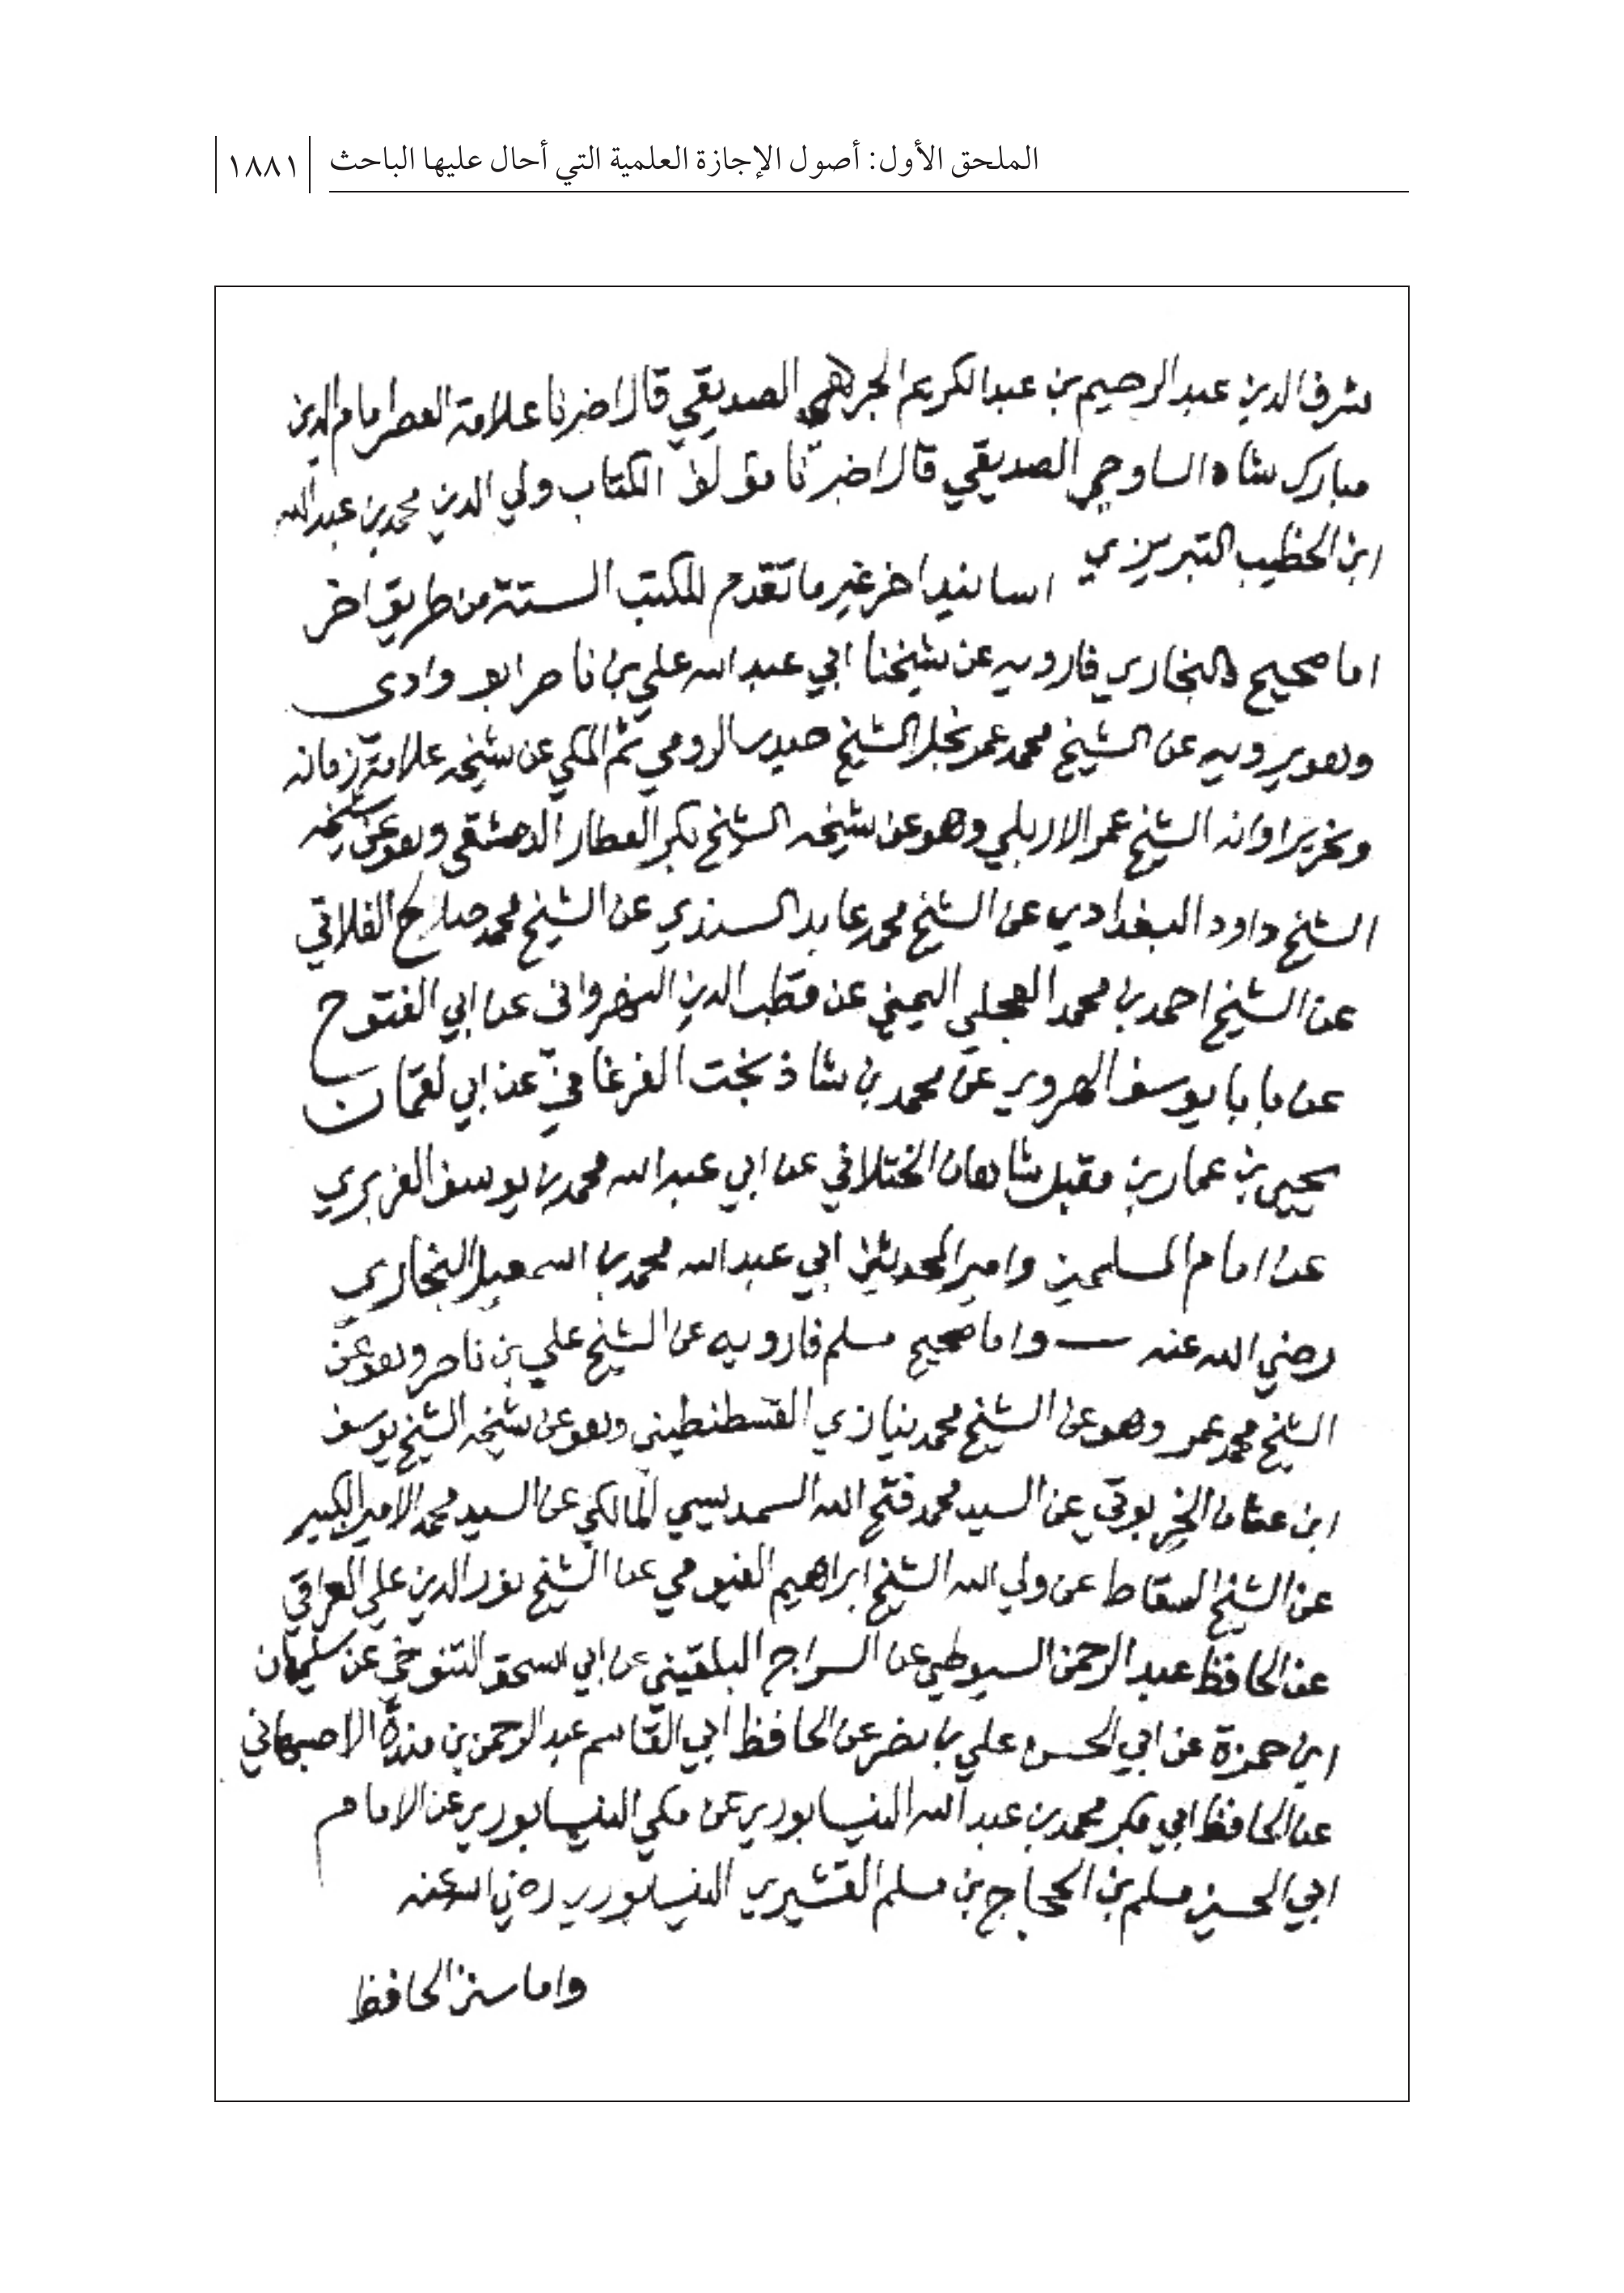 الملحق الأول: أصول الإجازة العلمية التي أحال عليها الباحث ١٨٨١
شرف الدين عبد الرحيم بن عبد الكريم الجرهمي الصديقي قال اخبرنا علامة العصر امام الدين
مبارك شاه الساوجي الصديقي قال اخبرنا مؤلف الكتاب ولي الدين محمد بن عبد الله
ابن الخطيب التبريزي اسانيد اخر غير ما تقدم للكتب الستة من طريق اخر
اما صحيح البخاري فارويه عن شيخنا ابي عبد الله علي بن ناصر ابو وادى
وهو يرويه عن الشيخ محمد عمر نجل الشيخ حيدر الرومي ثم المكي عن شيخه علامة زمانه
اوانه الشيخ عمر الاربلي وهو عن شيخه الشيخ بكر العطار الدمشقي وهو عن شيخه
الشيخ داود البغدادي عن الشيخ محمد عابد السندي عن الشيخ محمد صالح الفلاتي
عن الشيخ احمد بن محمد العجلي اليمني عن قطب الدين النهرواني عن ابي الفتوح
عن بابا يوسف الهروي عن محمد بن شاذ بخت الفرغاني عن ابي لقمان
يحيى بن عمار بن مقبل شاهان الختلاني عن ابي عبد الله محمد بن يوسف الفربري
عن امام المسلمين وامير المحدثين ابي عبد الله محمد بن اسمعيل البخاري
رضي الله عنه واما صحيح مسلم فارويه عن الشيخ علي بن ناصر وهو عن
الشيخ محمد عمر وهو عن الشيخ محمد نيازي القسطنطيني وهو عن شيخه الشيخ يوسف
ابن عثمان الخربوتي عن السيد محمد فتح الله السمديسي المالكي عن السيد محمد الامير الكبير
عن الشيخ السقاط عن ولي الله الشيخ ابراهيم الفيومي عن الشيخ نور الدين علي العراقي
عن الحافظ عبد الرحمن السيوطي عن السراج البلقيني عن ابي اسحق التنوخي عن سليمان
ابن حمزة عن ابي الحسن علي بن نصر عن الحافظ ابي القاسم عبد الرحمن بن مندة الاصبهاني
عن الحافظ ابي بكر محمد بن عبد الله النيسابوري عن مكي النيسابوري عن الامام
ابي الحسين مسلم بن الحجاج بن مسلم القشيري النيسابوري رضي الله عنه
واما سنن الحافظ